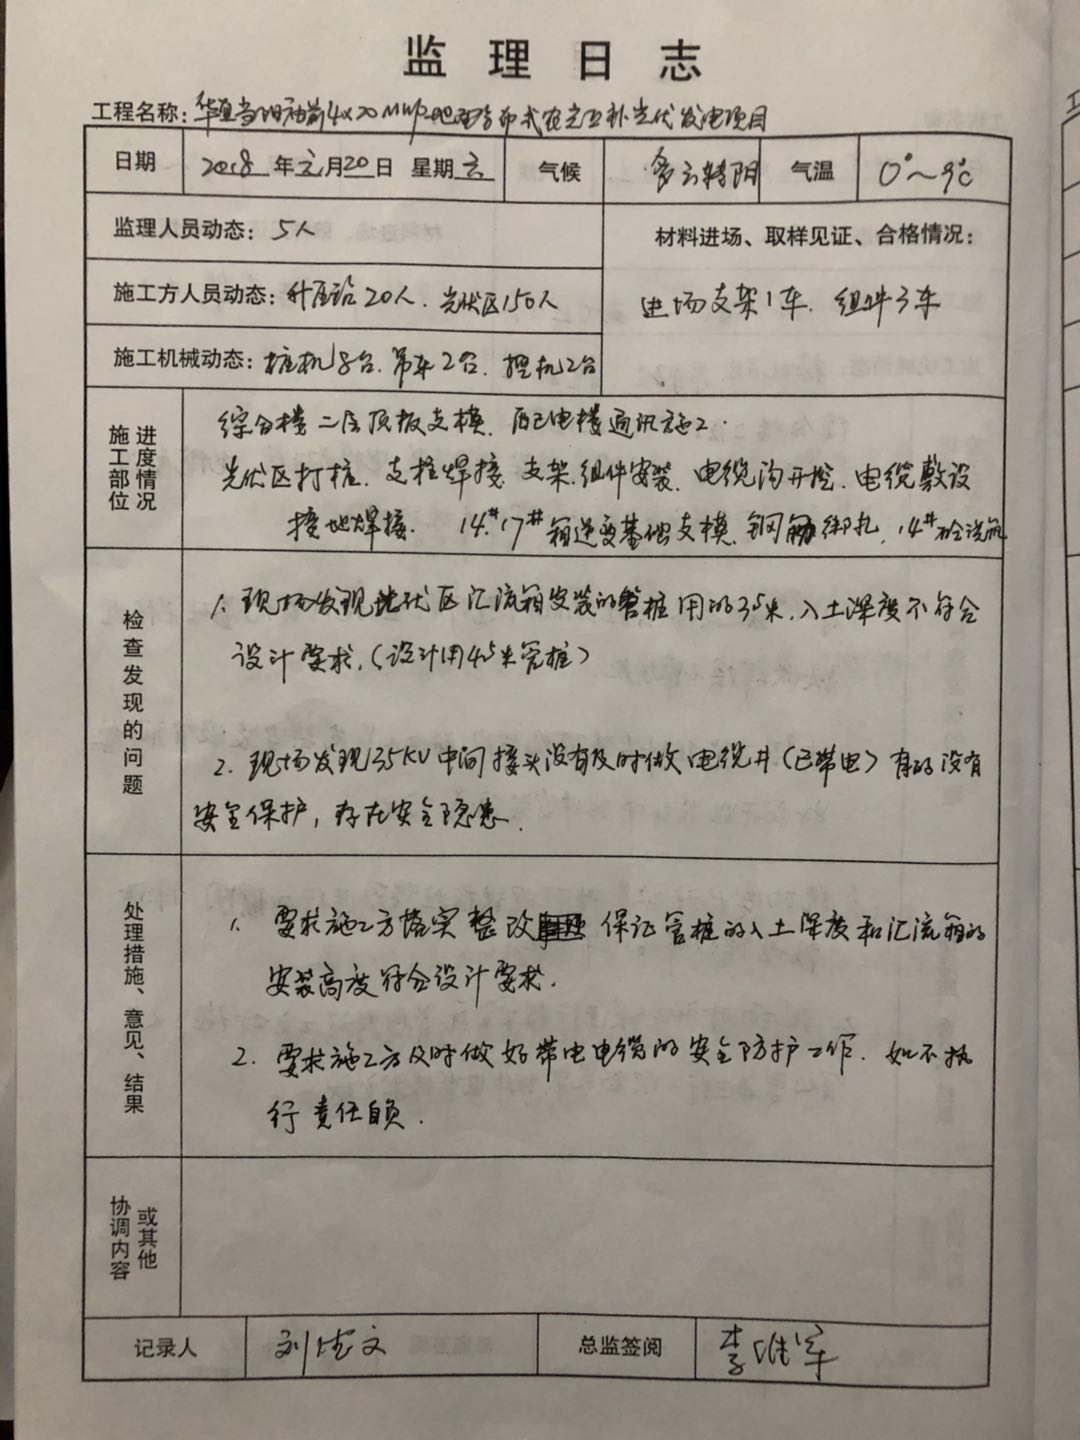 监理日志
工程名称: 4×20MWp地面分布式农光互补光伏发电项目
日期 2018年元月20日 星期 气候 多云转阴 气温 0°~9℃
监理人员动态: 5人
材料进场、取样见证、合格情况:
施工方人员动态: 升压站20人. 光伏区150人
进场支架1车. 组件3车
施工机械动态: 桩机8台. 吊车2台. 挖机2台
进度情况
施工部位
综合楼二层顶板支模. 配电楼通讯施工.
光伏区打桩. 支柱焊接. 支架.组件安装. 电缆沟开挖. 电缆敷设
接地焊接. 14.#17# 箱逆变基础支模. 钢筋绑扎, 14#砼浇筑
检查发现的问题
1. 现场发现光伏区汇流箱安装的管桩用的3.5米, 入土深度不符合
设计要求, (设计用4.5米管桩)
2. 现场发现35KV中间接头没有及时做电缆井(已带电) 有的没有
安全保护, 存在安全隐患.
处理措施、意见、结果
1. 要求施工方落实整改 保证管桩的入土深度和汇流箱的
安装高度符合设计要求.
2. 要求施工方及时做好带电电缆的安全防护工作. 如不执
行责任自负.
或其他
协调内容
记录人 刘 文 总监签阅 李 军